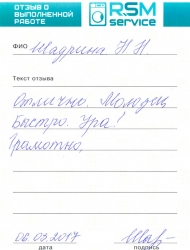 ОТЗЫВ О
ВЫПОЛНЕННОЙ
РАБОТЕ
RSM
service
ФИО Шадрина Н Н
Текст отзыва
Отлично. Молодец
Быстро. Ура!
Грамотно,
06.03.2017
дата подпись